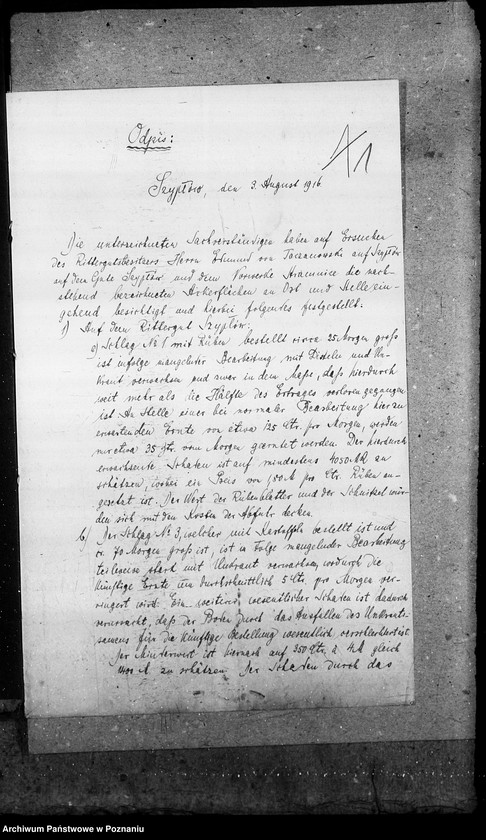 Odpis:
41
Szypłów, den 3. August 1916
Die unterzeichneten Sachverständigen haben auf Ersuchen
des Rittergutsbesitzers Herrn Edmund von Taczanowski auf Szypłów
auf dem Gute Szypłów und dem Vorwerke Hramnice die nach-
stehend bezeichneten Ackerflächen an Ort und Stelle ein-
gehend besichtigt und hierbei folgendes festgestellt:
1) Auf dem Rittergut Szypłów:
a) Schlag № 1 mit Rüben bestellt circa 35 Morgen groß
ist infolge mangelnder Bearbeitung mit Disteln und Un-
kraut verwachsen und zwar in dem Maße, daß hierdurch
weit mehr als die Hälfte des Ertrages verloren gegangen
ist. An Stelle einer bei normaler Bearbeitung hier zu
erwartenden Ernte von etwa 125 Ctr. pro Morgen, werden
nur etwa 35 Ztr. vom Morgen geerntet werden. Der hierdurch
erwachsene Schaden ist auf mindestens 4050 Mk zu
schätzen, wobei ein Preis von 1,50 M pro Ctr. Rüben an-
gesetzt ist. Der Wert der Rübenblätter und der Schnitzel wür-
den sich mit den Kosten der Abfuhr decken.
b) Der Schlag № 3, welcher mit Kartoffeln bestellt ist und
cr. 70 Morgen groß ist, ist in Folge mangelnder Bearbeitung
teilweise stark mit Unkraut verwachsen, wodurch die
künftige Ernte um durchschnittlich 5 Ctr. pro Morgen ver-
ringert wird. Ein weiterer wesentlicher Schaden ist dadurch
verursacht, daß der Boden durch das Ausfallen des Unkraut-
samens für die künftige Bestellung wesentlich verschlechtert ist.
Der Minderwert ist hiernach auf 350 Ctr. à 4 M gleich
1400 M zu schätzen. Der Schaden durch das
Archiwum Państwowe w Poznaniu